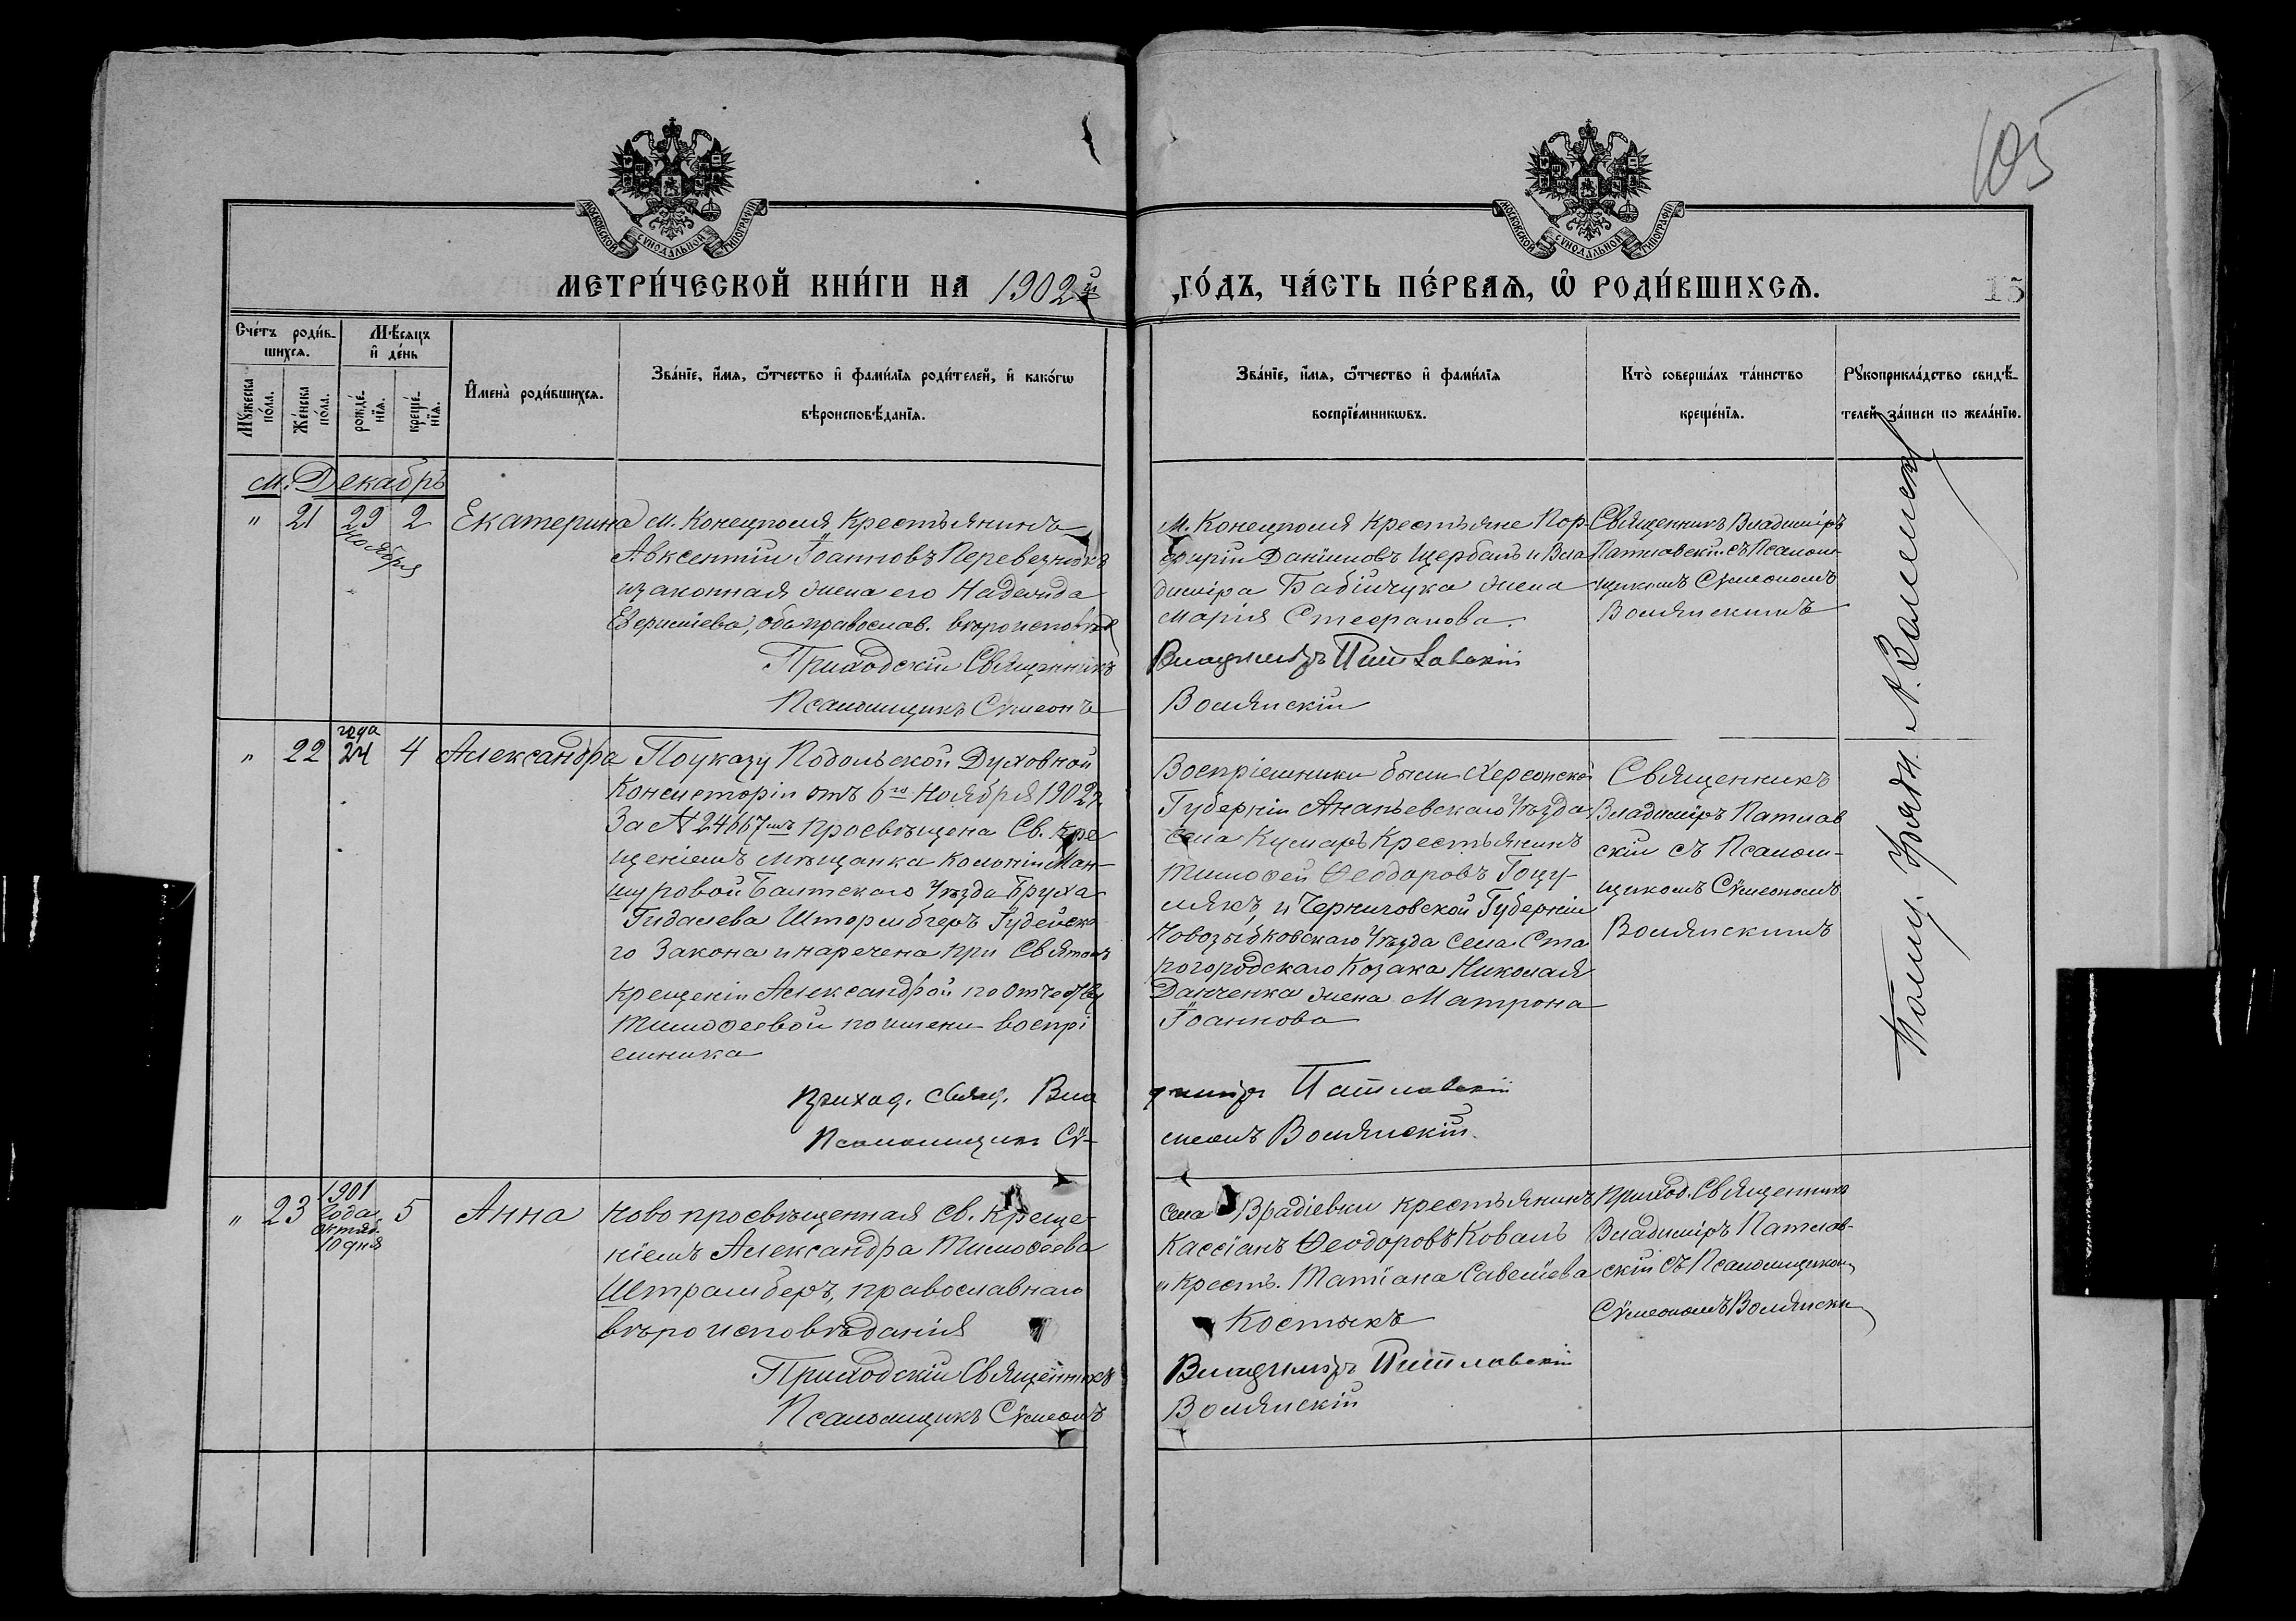 105
МОСКОВСКОЙ СѴНОДАЛЬНОЙ ТИПОГРАФІИ
МОСКОВСКОЙ СѴНОДАЛЬНОЙ ТИПОГРАФІИ
МЕТРИ́ЧЕСКОЙ КНИ́ГИ НА 1902й
ГО́ДЪ, ЧА́СТЬ ПЕ́РВАѦ, Ѽ РОДИ́ВШИХСѦ.
15
Сче́тъ роди́в-
шихсѧ.
Мꙋ́жеска по́ла.
Же́нска по́ла.
Мѣ́сѧцъ
и҆ де́нь
рожде́-
нїѧ.
креще́-
нїѧ.
И҆мена̀ роди́вшихсѧ.
Зва́нїе, и҆́мѧ, ѻ҆́тчество и҆ фами́лїѧ роди́телей, и҆ како́гѡ
вѣроисповѣ́данїѧ.
Зва́нїе, и҆́мѧ, ѻ҆́тчество и҆ фами́лїѧ
воспрїе́мникѡвъ.
Кто̀ соверша́лъ та́инство
креще́нїѧ.
Рꙋкоприкла́дство свидѣ́-
телей за́писи по жела́нїю.
м. Декабрь
" 21 29 Ноября 2 Екатерина
м. Конецполя Крестьянинъ
Авксентій Іоанновъ Перевезнюкъ
и законная жена его Надежда
оба православ. вѣроисповѣд
Приходскій Священникъ
Псаломщикъ Сѵмеонъ
м. Конецполя крестьяне Пор-
фирій Даніиловъ Щербань и Вла
диміра Бабійчука жена
Марія Стефанова.
Владиміръ Патлавскій
Волянскій
Священникъ Владиміръ
Патлавскій съ Псалом-
щикомъ Сѵмеономъ
Волянскимъ
" 22 года 24 4 Александра
По указу Подольской Духовной
Консисторіи отъ 6го Ноября 1902 г.
За № 24667мъ просвѣщена Св. Кре
щеніемъ мѣщанка колоніи Ман-
журовой Балтскаго Уѣзда Бруха
Гидалева Штормбгеръ Іудейска
го Закона и наречена при Святомъ
Крещеніи Александрой по Отчеству
Тимофеевой по имени воспрі
емника
Приход. Свящ. Вла
Псаломщикъ Сѵ-
Воспріемники были Херсонской
Губерніи Ананьевскаго Уѣзда
села Кумаръ Крестьянинъ
Тимофей Ѳеодоровъ Гоцу-
лякъ, и Черниговской Губерніи
Новозыбковскаго Уѣзда села Ста
рогородскаго Козака Николая
Данченка жена Матрона
Іоаннова
диміръ Патлавскій
меонъ Волянскій.
Священникъ
Владиміръ Патлав
скій съ Псалом-
щикомъ Сѵмеономъ
Волянскимъ
" 23 1901 года Октяб. 10 дня 5 Анна
Ново просвѣщенная св. Креще-
ніемъ Александра Тимофеева
Штрамберъ, православнаго
вѣроисповѣданія
Приходскій Священникъ
Псаломщикъ Сѵмеонъ
Села Врадіевки крестьянинъ
Кассіанъ Ѳеодоровъ Коваль
и Крест. Татіана Савеліева
Костюкъ
Владиміръ Патлавскій
Волянскій
Приход. Священникъ
Владиміръ Патлав-
скій съ Псаломщикомъ
Сѵмеономъ Волянски